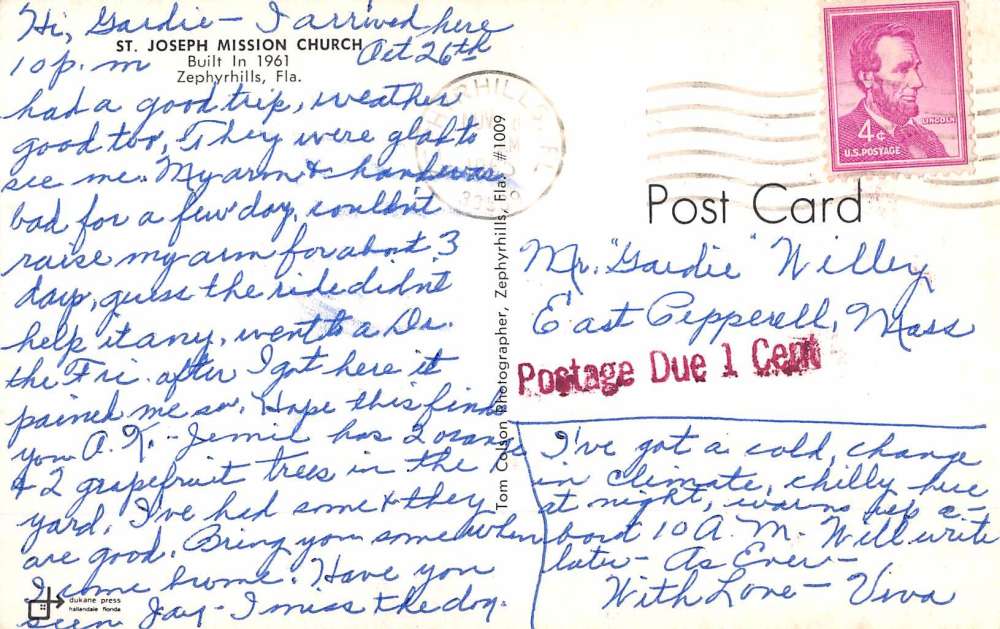 Hi, Gardie - I arrived here
ST. JOSEPH MISSION CHURCH
Built In 1961
Zephyrhills, Fla.
10 p. m Oct 26th
had a good trip, weather
good too, They were glad to
see me. My arm & hand was
bad for a few day, couldn't
raise my arm for about 3
days, guess the ride didn't
help it any, went to a Dr.
the Fri. after I got here it
pained me so. Hope this finds
you O. K. - Jennie has 2 orange
& 2 grapefruit trees in the
yard, I've had some & they
are good. Bring you some when
I come home. Have you
seen Jay - I miss the dog.
dukane press
hallandale florida
Tom Colson Photographer, Zephyrhills, Fla. #1009
LINCOLN
4¢
U.S. POSTAGE
Post Card
Mr. "Gardie" Willey
East Pepperell, Mass
Postage Due 1 Cent
I've got a cold, change
in climate, chilly here
at night, warms up a-
bout 10 A. M. Will write
later - As Ever -
With Love - Viva